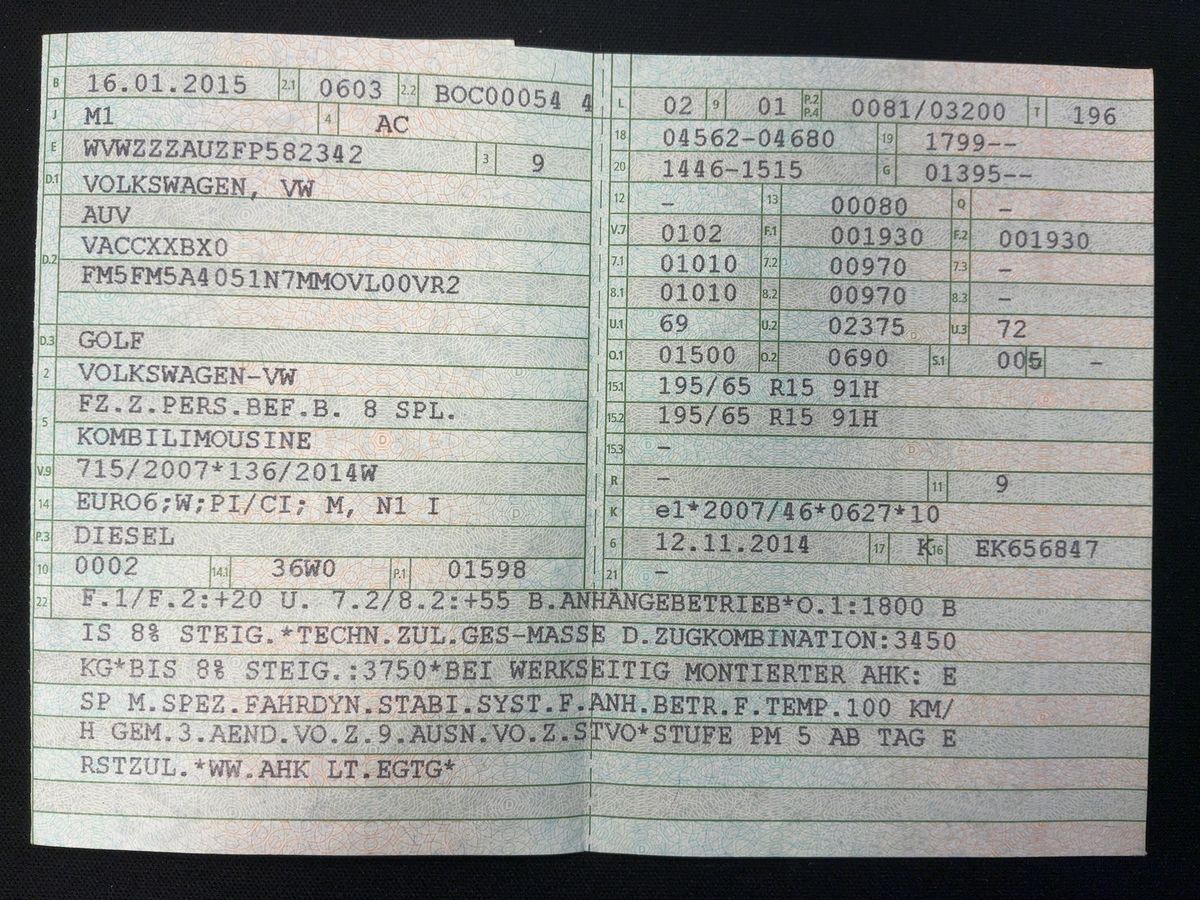 B 16.01.2015 2.1 0603 2.2 BOC00054 4
J M1 4 AC
E WVWZZZAUZFP582342 3 9
D.1 VOLKSWAGEN, VW
AUV
D.2 VACCXXBX0
FM5FM5A4051N7MMOVL00VR2
D.3 GOLF
2 VOLKSWAGEN-VW
5 FZ.Z.PERS.BEF.B. 8 SPL.
KOMBILIMOUSINE
V.9 715/2007*136/2014W
14 EURO6;W;PI/CI; M, N1 I
P.3 DIESEL
10 0002 14.1 36W0 P.1 01598
L 02 9 01 P.2 P.4 0081/03200 T 196
18 04562-04680 19 1799--
20 1446-1515 G 01395--
12 – 13 00080 Q –
V.7 0102 F.1 001930 F.2 001930
7.1 01010 7.2 00970 7.3 –
8.1 01010 8.2 00970 8.3 –
U.1 69 U.2 02375 U.3 72
O.1 01500 O.2 0690 S.1 005 –
15.1 195/65 R15 91H
15.2 195/65 R15 91H
15.3 –
R – 11 9
K e1*2007/46*0627*10
6 12.11.2014 17 K 16 EK656847
21 –
22 F.1/F.2:+20 U. 7.2/8.2:+55 B.ANHÄNGEBETRIEB*O.1:1800 B
IS 8% STEIG.*TECHN.ZUL.GES-MASSE D.ZUGKOMBINATION:3450
KG*BIS 8% STEIG.:3750*BEI WERKSEITIG MONTIERTER AHK: E
SP M.SPEZ.FAHRDYN.STABI.SYST.F.ANH.BETR.F.TEMP.100 KM/
H GEM.3.AEND.VO.Z.9.AUSN.VO.Z.STVO*STUFE PM 5 AB TAG E
RSTZUL.*WW.AHK LT.EGTG*